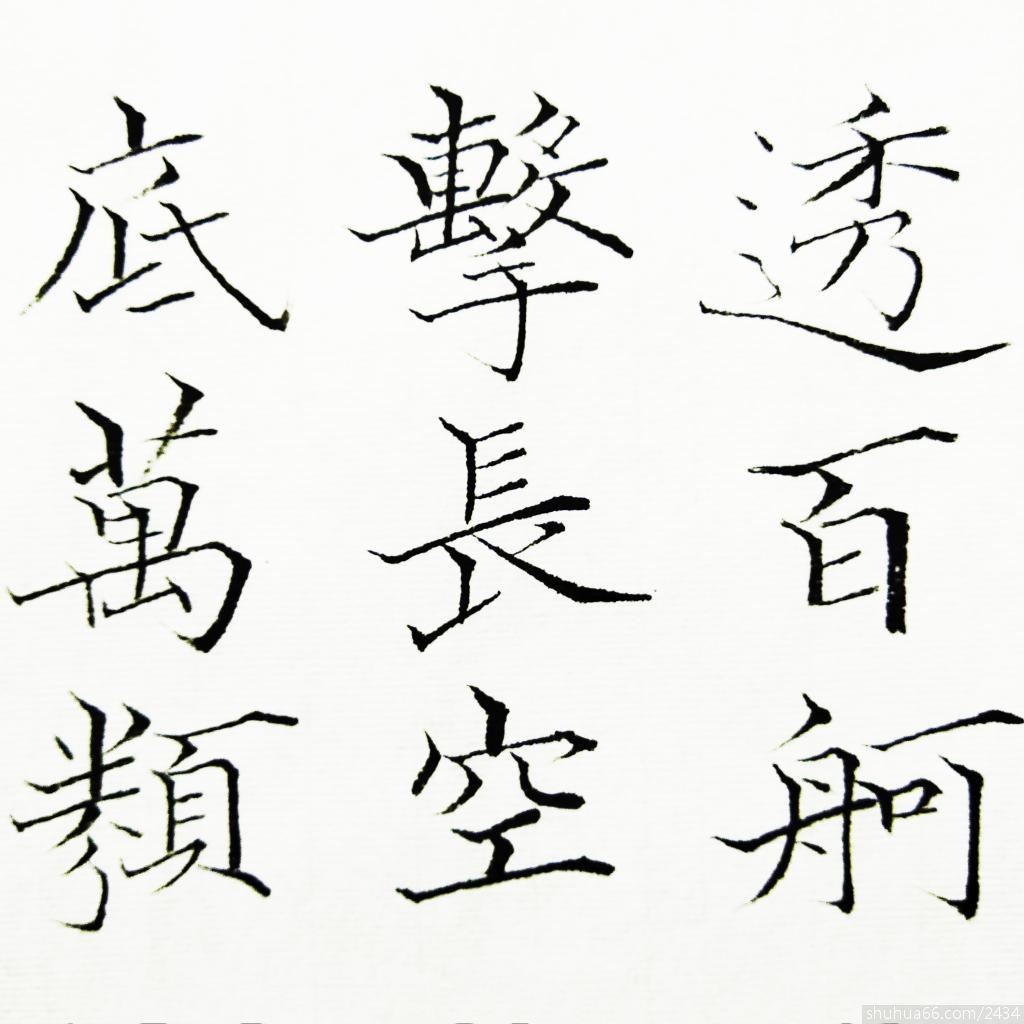 透百舸
擊長空
底萬類
shuhua66.com/2434